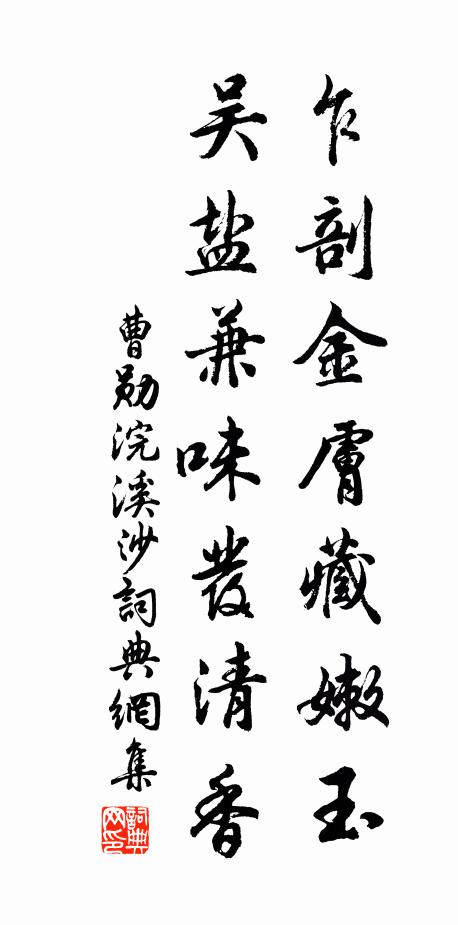 乍剖金膚藏嫩玉
吴盐兼味發清香
曹勛浣溪沙詞典網集
詞典网印